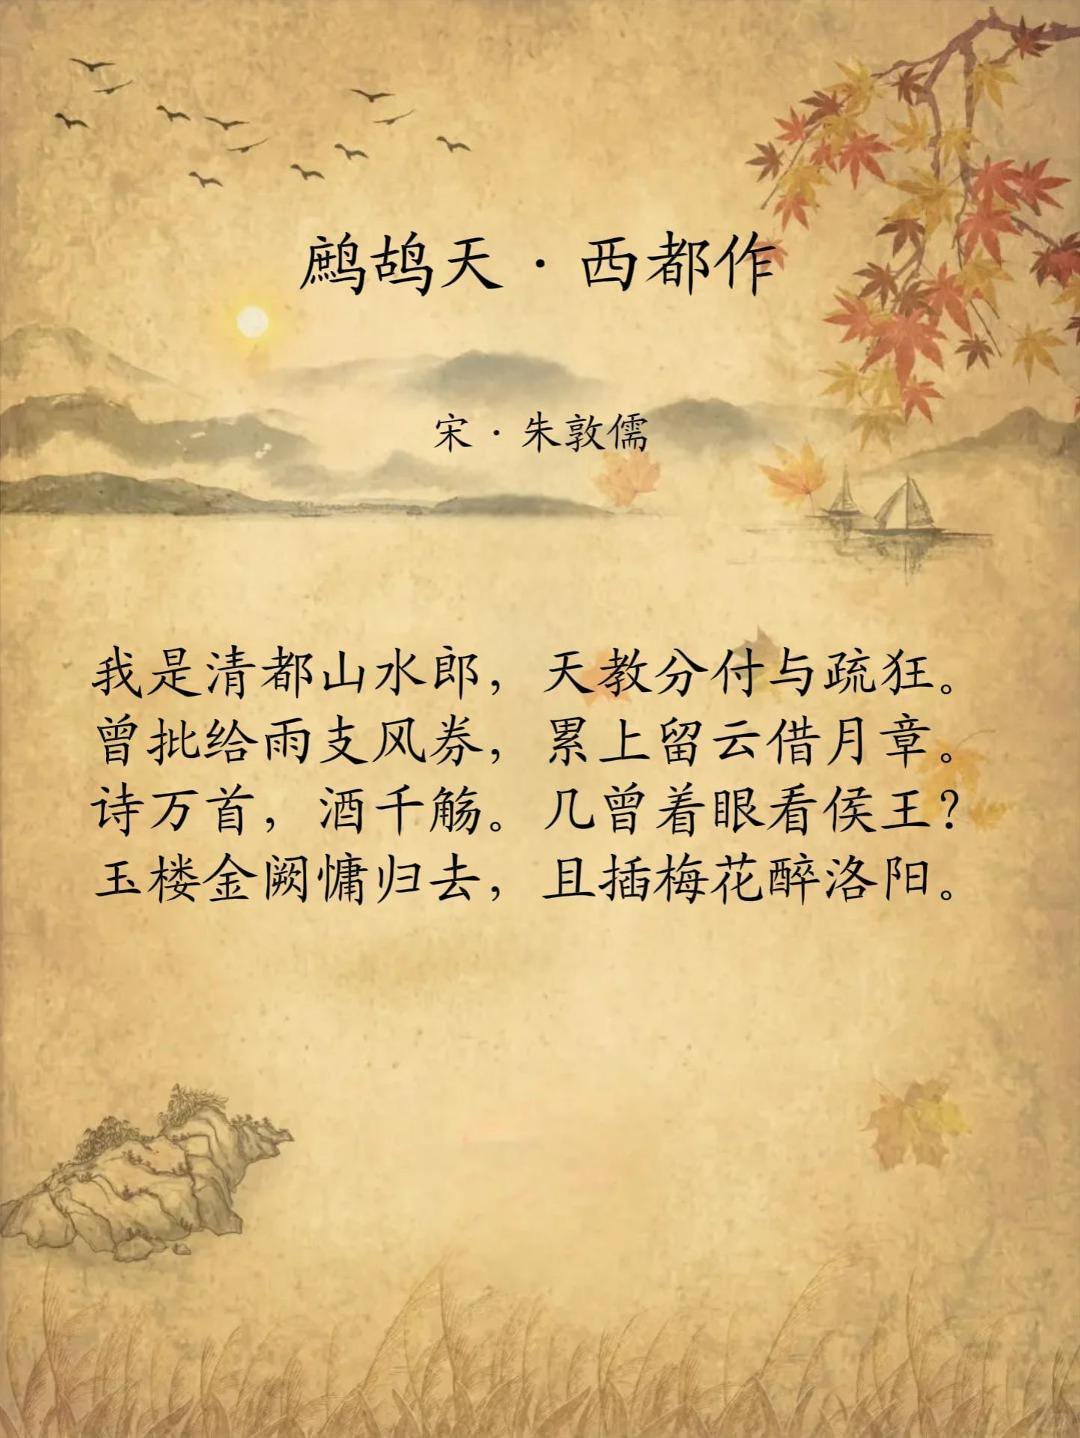 鹧鸪天·西都作
宋·朱敦儒
我是清都山水郎，天教分付与疏狂。
曾批给雨支风券，累上留云借月章。
诗万首，酒千觞。几曾着眼看侯王？
玉楼金阙慵归去，且插梅花醉洛阳。